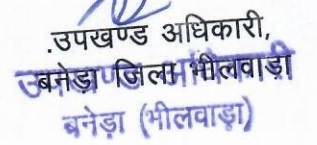 .उपखण्ड अधिकारी,
बनेड़ा जिला भीलवाड़ा
बनेड़ा (भीलवाड़ा)